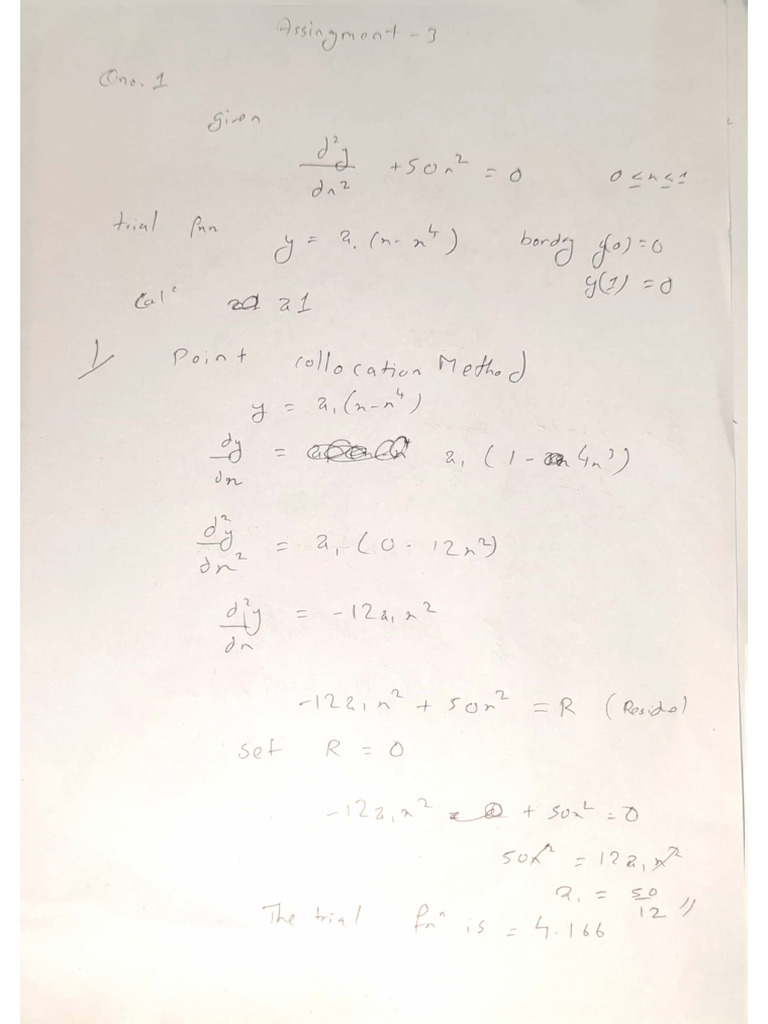 Assingment - 3
Qno. 1
given
d²y/dx² + 50x² = 0 0 ≤ x ≤ 1
trial fnn y = a₁ (x - x⁴) bordy y(0) = 0
y(1) = 0
Calⁿ a1
1/ Point collocation Method
y = a₁ (x - x⁴)
dy/dx = a₁ (1 - 4x³)
d²y/dx² = a₁ (0 - 12x²)
d²y/dx = -12a₁x²
-12a₁x² + 50x² = R (Residol)
set R = 0
-12a₁x² + 50x² = 0
50x² = 12a₁x²
a₁ = 50/12 //
The trial fnⁿ is = 4.166